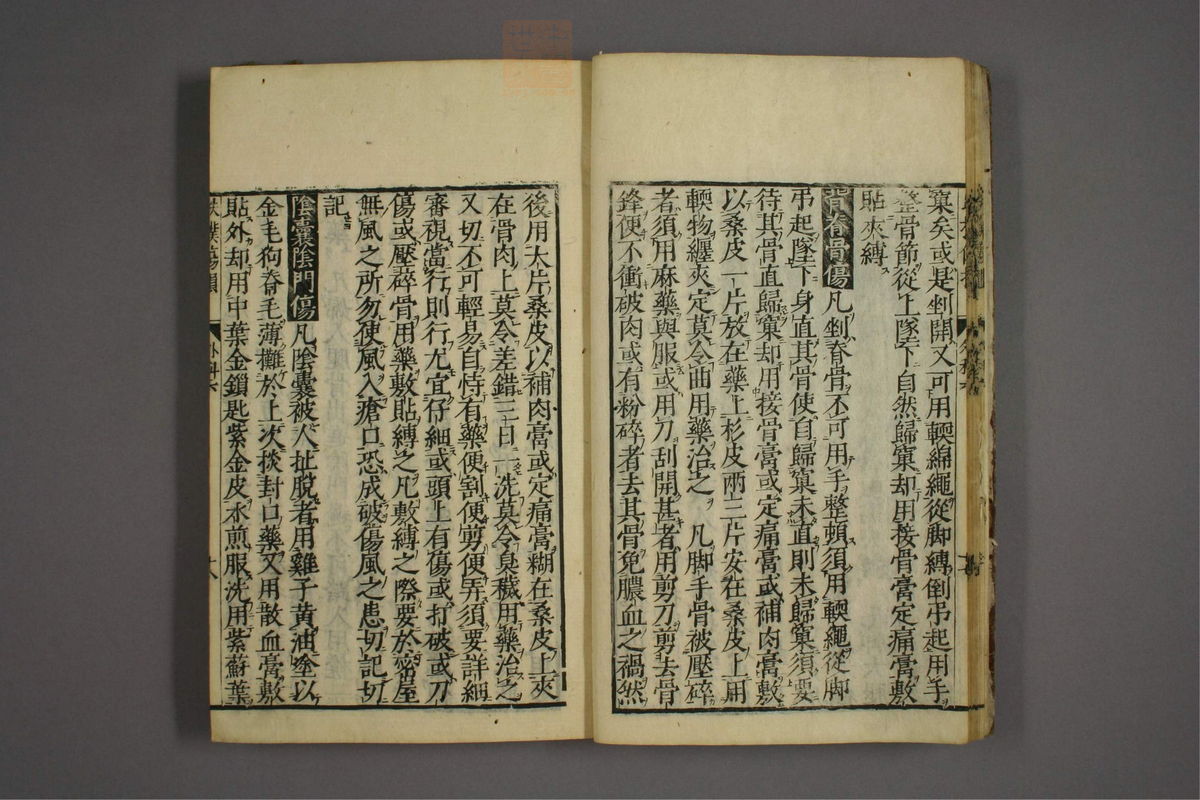 窠矣或是剉開又可用輭綿繩從脚縛倒吊起用手
整骨節從上墜下自然歸窠却用接骨膏定痛膏敷
貼夾縛
背脊骨傷凡剉脊骨不可用手整頓須用輭繩從脚
吊起墜下身直其骨使自歸窠未直則未歸窠須要
待其骨直歸窠却用接骨膏或定痛膏或補肉膏敷
以桑皮一片放在藥上杉皮兩三片安在桑皮上用
輭物纏夾定莫令曲用藥治之 凡脚手骨被壓碎
者須用麻藥與服或用刀刮開甚者用剪刀剪去骨
鋒便不衝破肉或有粉碎者去其骨免膿血之禍然
後用大片桑皮以補肉膏或定痛膏糊在桑皮上夾
在骨肉上莫令差錯三日一洗莫令臭穢用藥治之
又切不可輕易自恃有藥便割便剪便弄須要詳細
審視當行則行尤宜仔細或頭上有傷或打破或刀
傷或壓碎骨用藥敷貼縛之凡敷縛之際要於密屋
無風之所勿使風入瘡口恐成破傷風之患切記切
記
陰囊陰門傷凡陰囊被人扯脫者用雞子黃油塗以
金毛狗脊毛薄攤於上次掞封口藥又用散血膏敷
貼外却用中葉金鎖匙紫金皮水煎服洗用紫蘇葉
外科六
十八